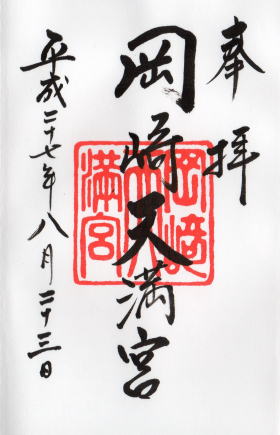 奉拝
岡崎天満宮
岡崎天満宮
平成二十七年八月二十三日